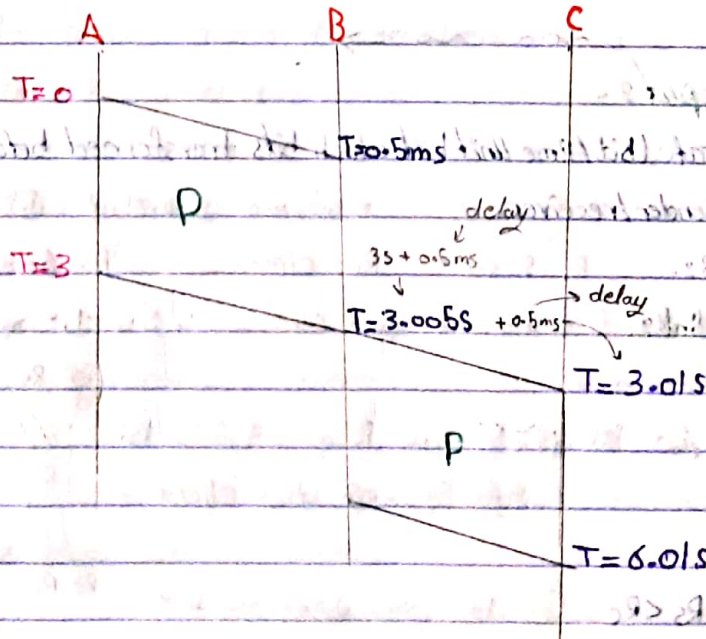 A B C
T=0
T=0.5ms
P
delay
3s + 0.5ms
T=3
delay
T=3.005s +0.5ms
T= 3.01s
P
T=6.01s